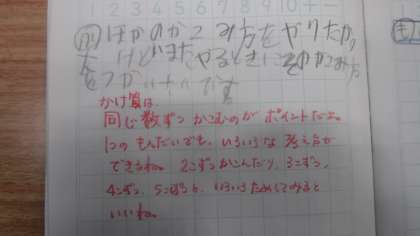 1 2 3 4 5 6 7 8 9 10 + −
ほかのかこみ方をやりたかっ
たけどいまたやるときにそのかこみ方
をつかいたいです
かけ算は、
同じ数ずつ かこむのが ポイントだよ。
1つの もんだいでも、いろいろな 考え方が
できるね。2こずつ かこんだり、3こずつ、
4こずつ、5こずつも、いろいろためしてみると
いいね。